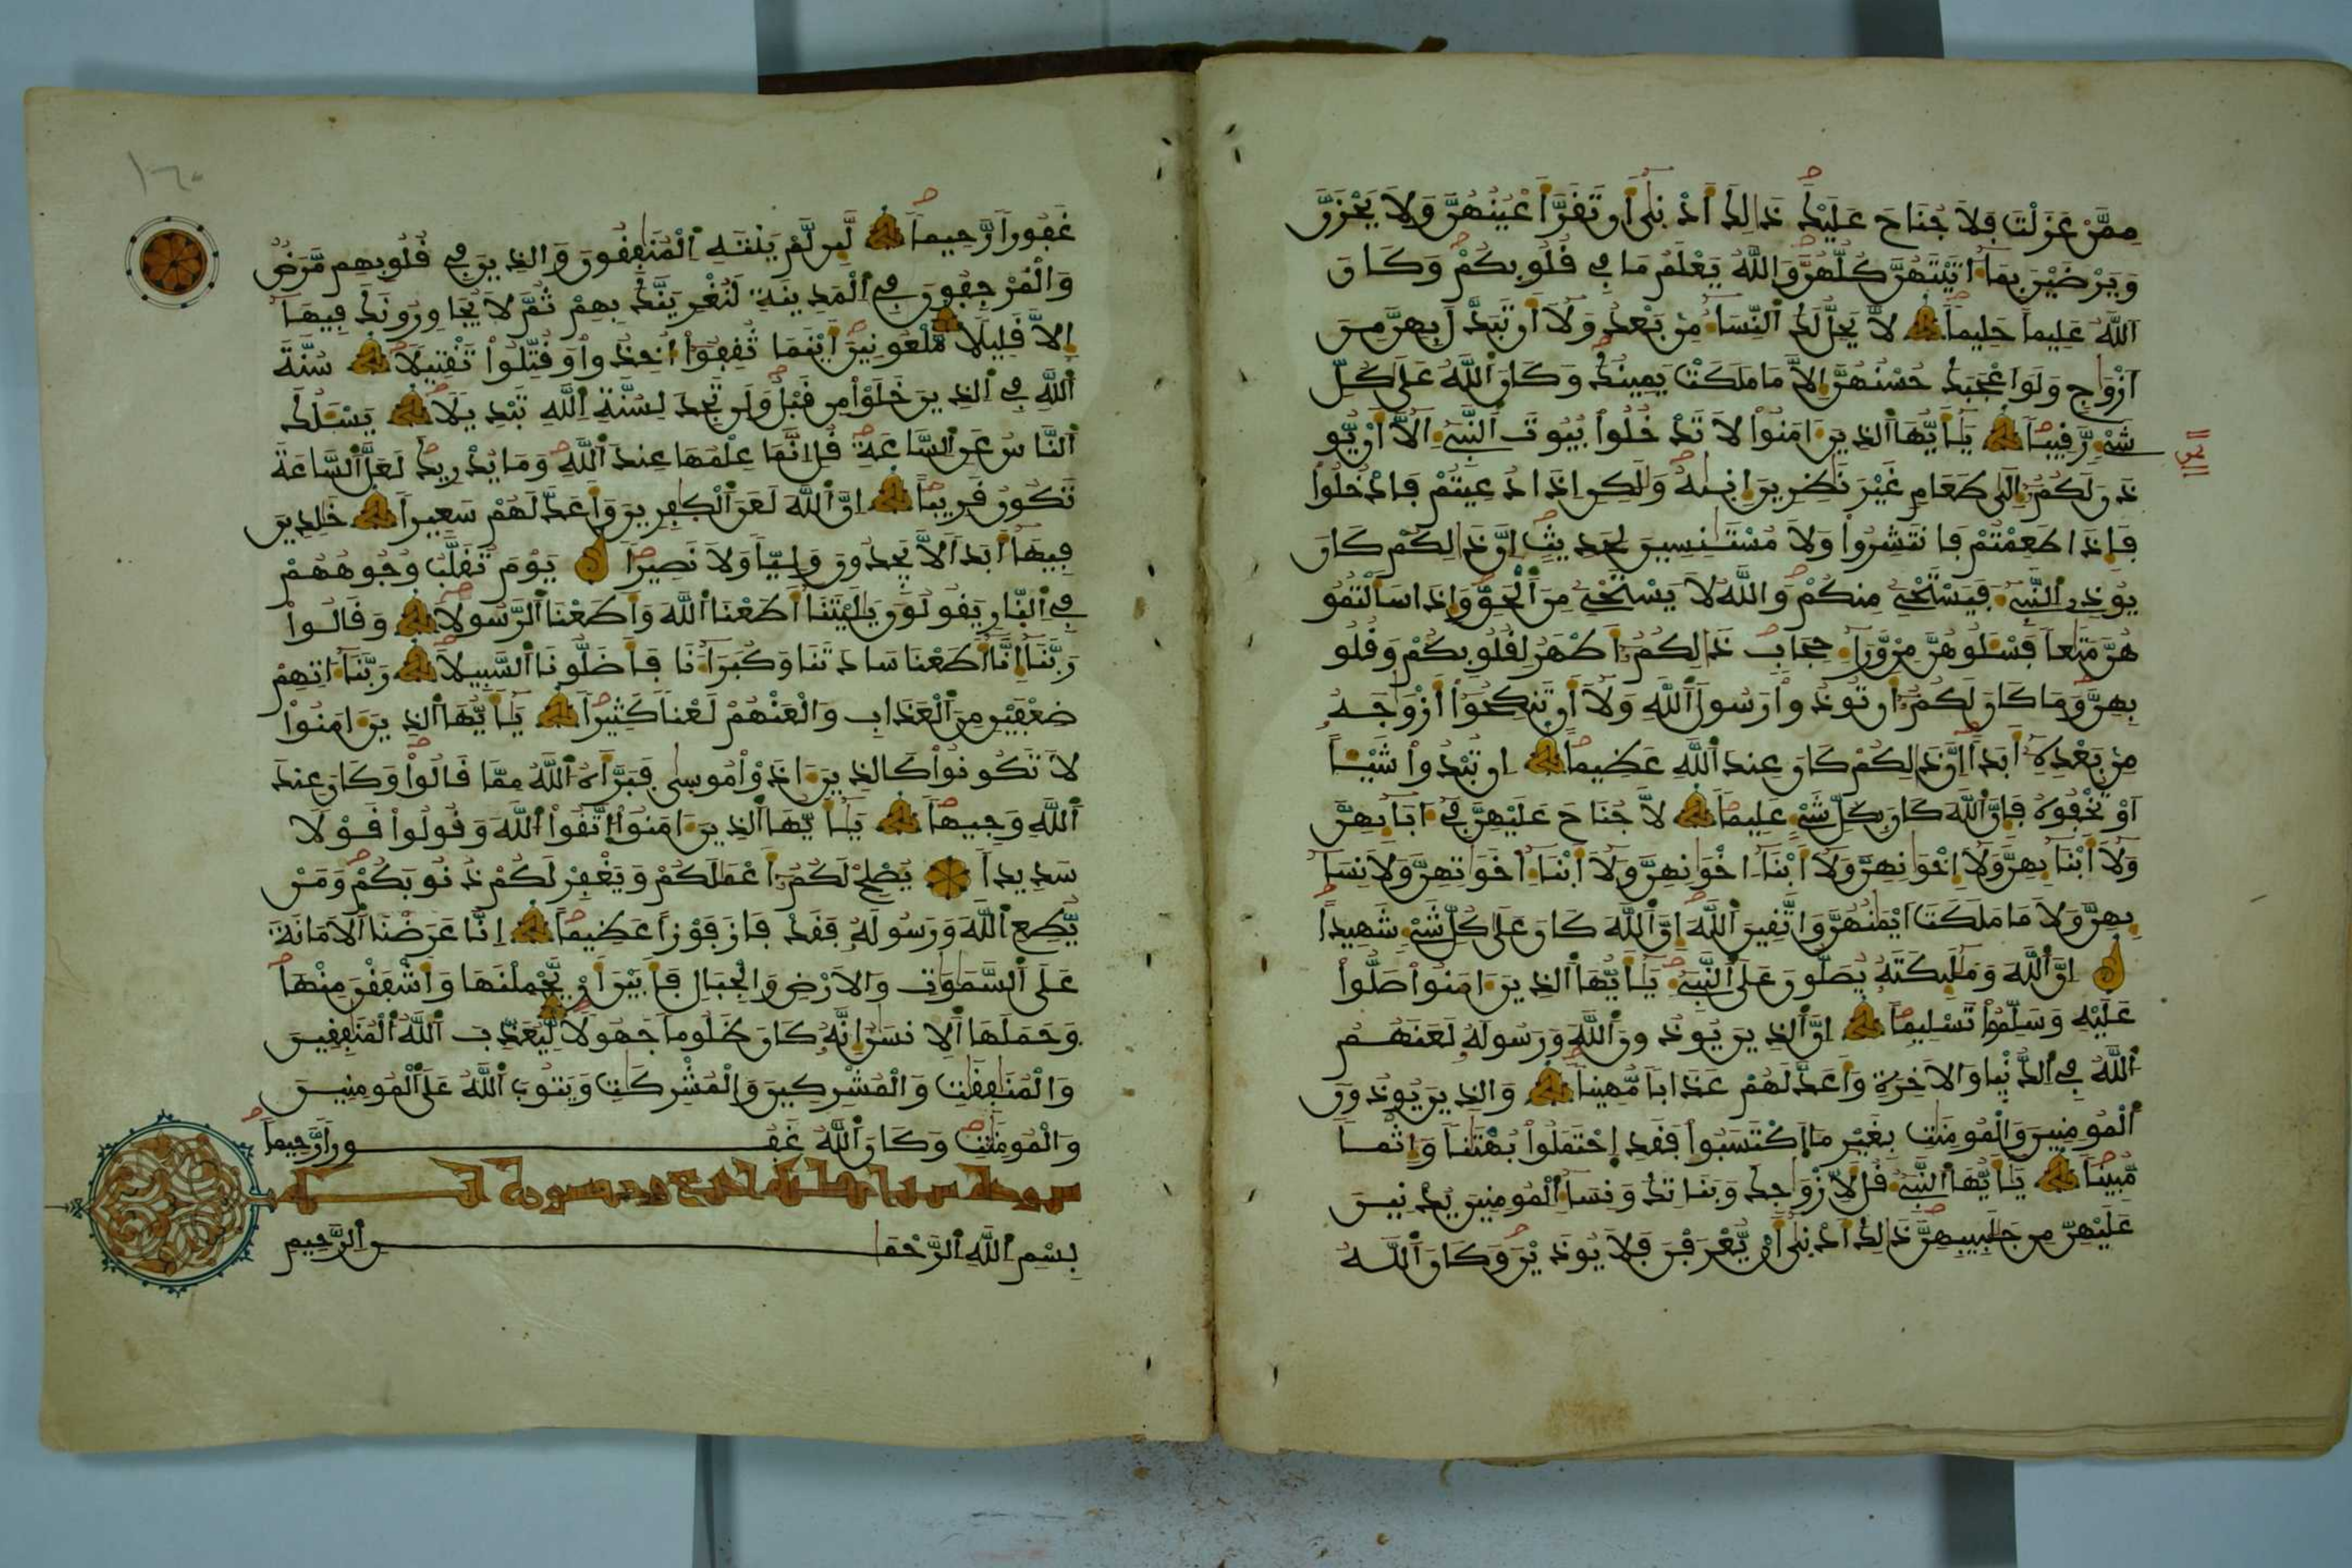 ممن عزلت فلا جناح عليك ذالك أدنى أن تقر أعينهن ولا يحزن
ويرضين بما ءاتيتهن كلهن والله يعلم ما في قلوبكم وكان
الله عليما حليما لا يحل لك النساء من بعد ولا أن تبدل بهن من
ازواج ولو اعجبك حسنهن إلا ما ملكت يمينك وكان الله على كل
شيء رقيبا يأيها الذين ءامنوا لا تدخلوا بيوت النبيء الا أن يو
ذن لكم إلى طعام غير نظرين إنيه ولكن اذا دعيتم فادخلوا
فإذا طعمتم فانتشروا ولا مستنسين لحديث ان ذالكم كان
يوذي النبيء فيستحيي منكم والله لا يستحيي من الحق وإذا سألتمو
هن متعا فسئلوهن من وراء حجاب ذالكم أطهر لقلوبكم وقلو
بهن وما كان لكم أن توذوا رسول الله ولا أن تنكحوا أزواجه
من بعده أبدا إن ذالكم كان عند الله عظيما ان تبدوا شيئا
او تخفوه فإن الله كان بكل شيء عليما لا جناح عليهن في ءابائهن
ولا أبنائهن ولا إخوانهن ولا أبناء اخوانهن ولا أبناء اخواتهن ولا نسا
ئهن ولا ما ملكت ايمنهن واتقين الله ان الله كان على كل شيء شهيدا
ان الله وملئكته يصلون على النبيء يأيها الذين ءامنوا صلوا
عليه وسلموا تسليما ان الذين يوذون الله ورسوله لعنهم
الله في الدنيا والاخرة وأعد لهم عذابا مهينا والذين يوذون
المومنين والمومنت بغير ما اكتسبوا فقد احتملوا بهتنا وإثما
مبينا يأيها النبيء قل لأزواجك وبناتك ونساء المومنين يدنين
عليهن من جلبيبهن ذالك أدنى أن يعرفن فلا يوذين وكان الله
١٦٠
غفورا رحيما لئن لم ينته المنفقون والذين في قلوبهم مرض
والمرجفون في المدينة لنغرينك بهم ثم لا يجاورونك فيها
إلا قليلا ملعونين أينما ثقفوا أخذوا وقتلوا تقتيلا سنة
الله في الذين خلوا من قبل ولن تجد لسنة الله تبديلا يسئلك
الناس عن الساعة قل إنما علمها عند الله وما يدريك لعل الساعة
تكون قريبا ان الله لعن الكفرين وأعد لهم سعيرا خلدين
فيها أبدا لا يجدون وليا ولا نصيرا يوم تقلب وجوههم
في النار يقولون يليتنا أطعنا الله وأطعنا الرسولا وقالوا
ربنا إنا أطعنا سادتنا وكبراءنا فأضلونا السبيلا ربنا ءاتهم
ضعفين من العذاب والعنهم لعنا كثيرا يأيها الذين ءامنوا
لا تكونوا كالذين ءاذوا موسى فبرأه الله مما قالوا وكان عند
الله وجيها يأيها الذين ءامنوا اتقوا الله وقولوا قولا
سديدا يصلح لكم أعملكم ويغفر لكم ذنوبكم ومن
يطع الله ورسوله فقد فاز فوزا عظيما إنا عرضنا الأمانة
على السموات والارض والجبال فأبين أن يحملنها وأشفقن منها
وحملها الانسن إنه كان ظلوما جهولا ليعذب الله المنفقين
والمنفقت والمشركين والمشركت ويتوب الله على المومنين
والمومنت وكان الله غفورا رحيما
سورة سبا مكية اربع وخمسون اية
بسم الله الرحمن الرحيم